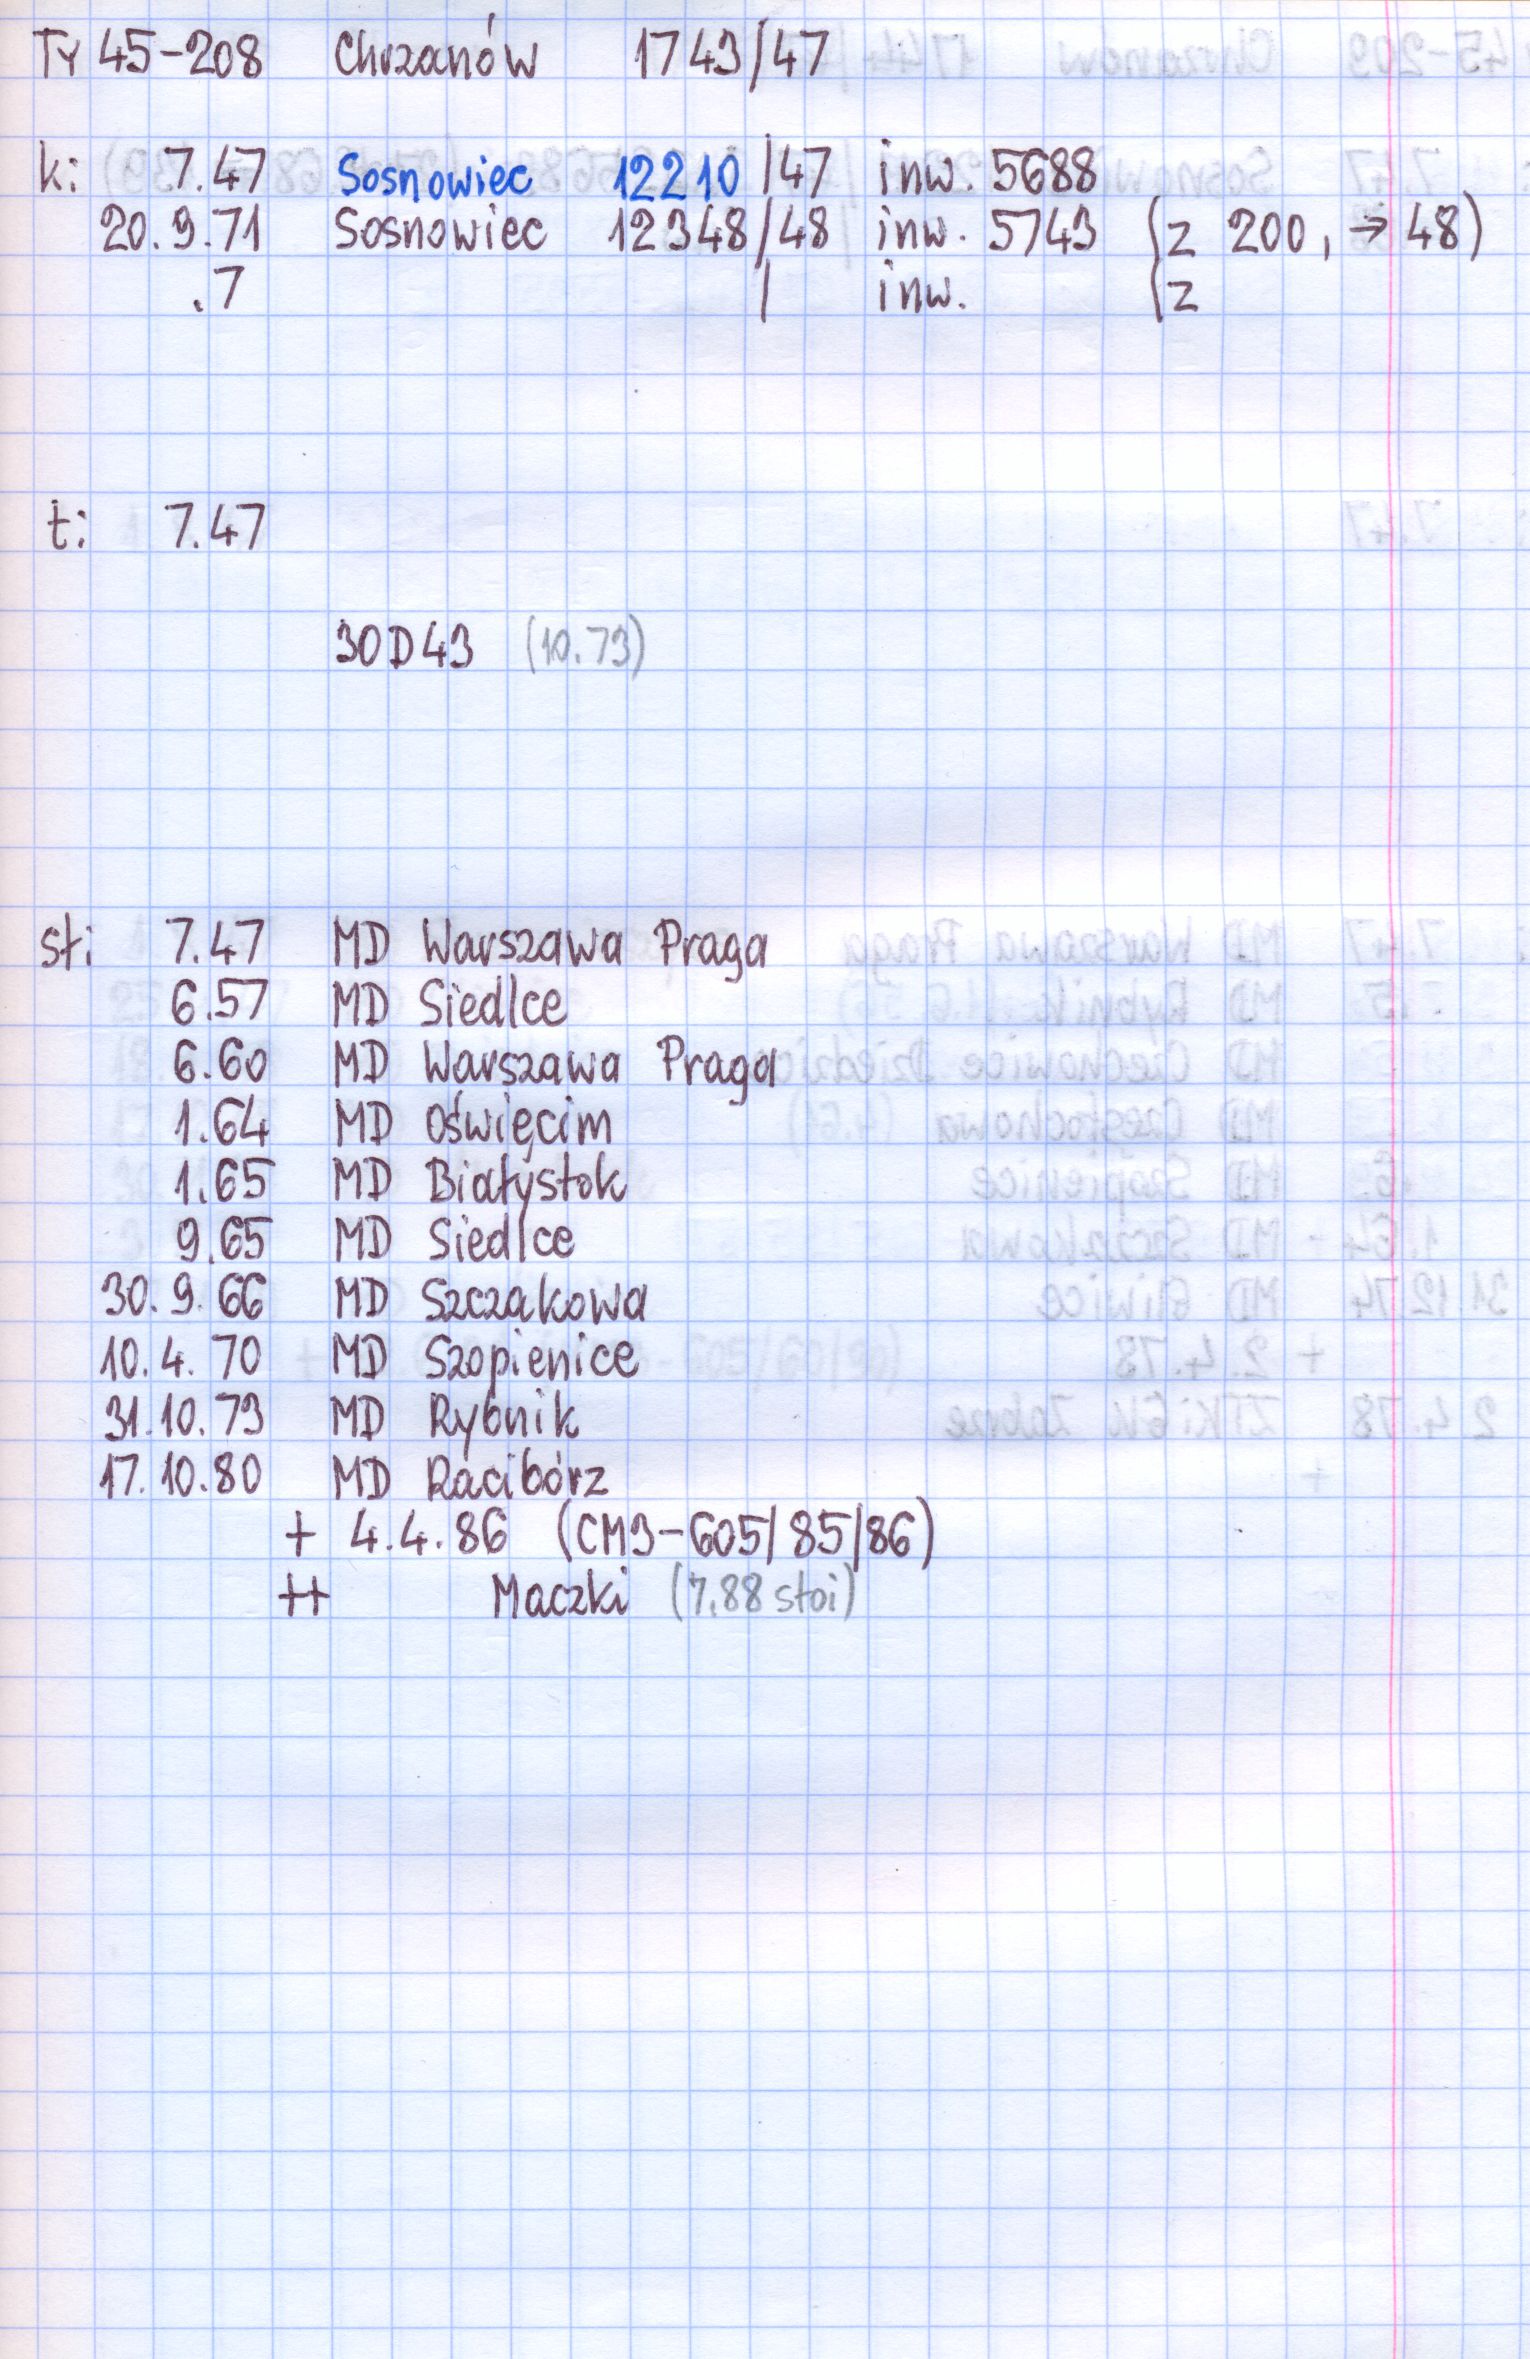 Ty 45-208 Chrzanów 1743/47
k: 7.47 Sosnowiec 12210/47 inw. 5688
20.9.71 Sosnowiec 12348/48 inw. 5743 (z 200, → 48)
.7 / inw. (z
t: 7.47
30D43 (10.73)
st: 7.47 MD Warszawa Praga
6.57 MD Siedlce
6.60 MD Warszawa Praga
1.64 MD Oświęcim
1.65 MD Białystok
9.65 MD Siedlce
30.9.66 MD Szczakowa
10.4.70 MD Szopienice
31.10.73 MD Rybnik
17.10.80 MD Racibórz
+ 4.4.86 (CM9-605/85/86)
++ Maczki (7.88 stoi)